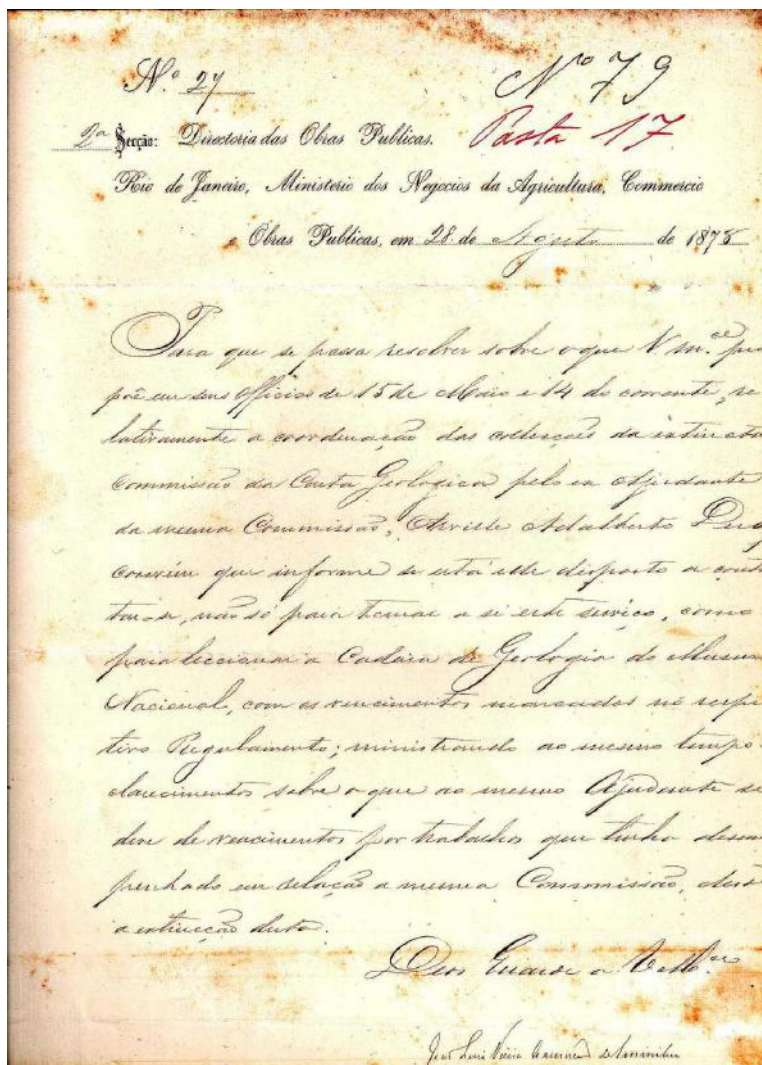 N.º 27
Nº 79
2ª Secção: Directoria das Obras Publicas.
Pasta 17
Rio de Janeiro, Ministerio dos Negocios da Agricultura, Commercio
e Obras Publicas, em 28 de Agosto de 1878
Para que se possa resolver sobre o que V. M.ce pro
põe em seus officios de 15 de Maio e 14 do corrente, re
lativamente a coordenação das collecções da extincta
Commissão da Carta Geologica pelo ex Ajudante
da mesma Commissão, Orville Adalberto Derby
convém que informe se está elle disposto a cont
tar-se, não só para tomar a si este serviço, como
para leccionar a Cadeira de Geologia do Museu
Nacional, com os vencimentos marcados no respec
tivo Regulamento; ministrando ao mesmo tempo
clarecimentos sobre o que ao mesmo Ajudante se
deve de vencimentos por trabalhos que tinha desem
penhado em relação a mesma Commissão, desde
a extincção desta.
Deos Guarde a V. M.ce